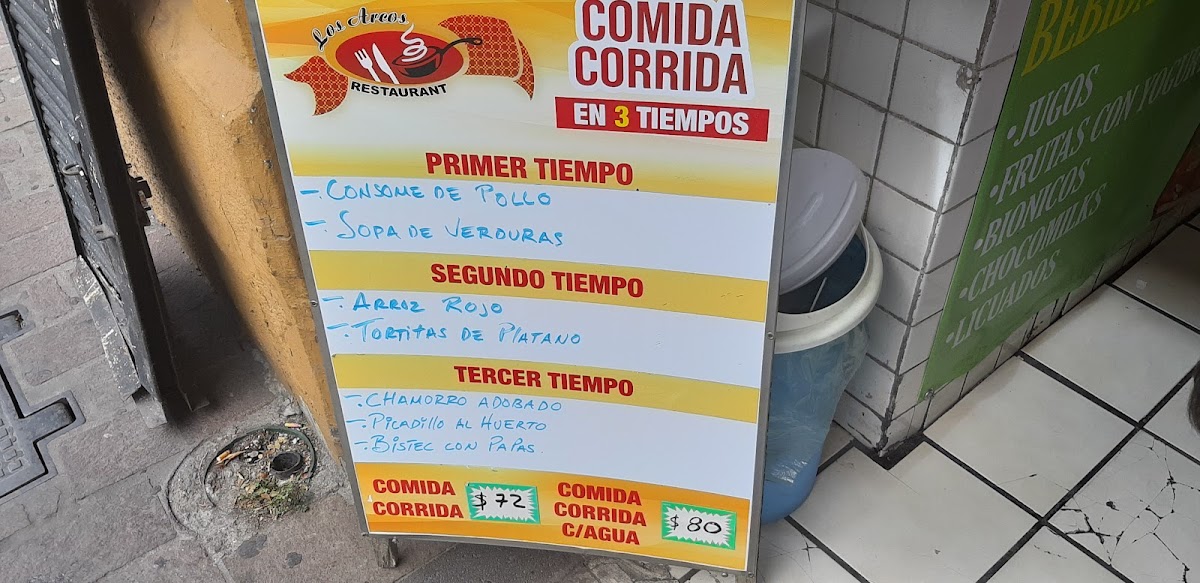 Los Arcos
RESTAURANT
COMIDA
CORRIDA
EN 3 TIEMPOS
PRIMER TIEMPO
- CONSOME DE POLLO
- SOPA DE VERDURAS
SEGUNDO TIEMPO
- ARROZ ROJO
- TORTITAS DE PLATANO
TERCER TIEMPO
- CHAMORRO ADOBADO
- PICADILLO AL HUERTO
- BISTEC CON PAPAS
COMIDA
CORRIDA
$72
COMIDA
CORRIDA
C/AGUA
$80
•JUGOS
•FRUTAS CON
•BIONICOS
•CHOCOMILKS
•LICUADOS